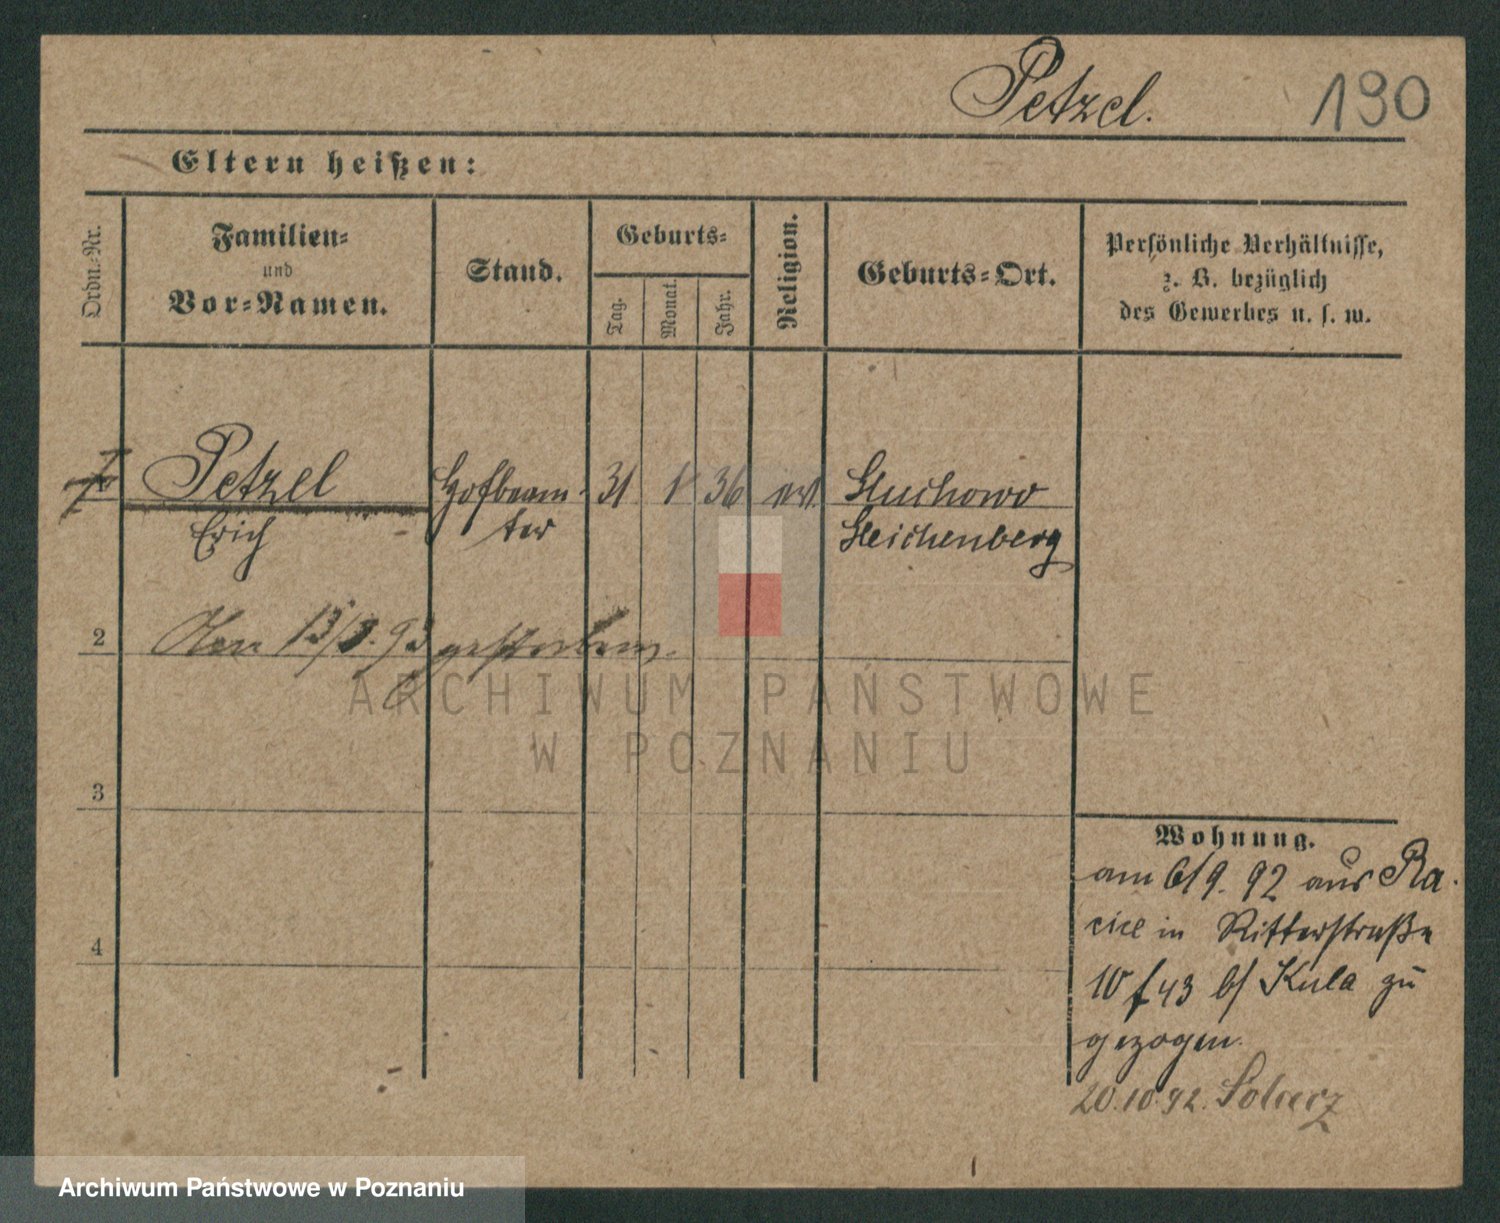 Petzel. 190
Eltern heißen:
Ordn.-Nr.
Familien-
und
Vor-Namen.
Stand.
Geburts-
Tag.
Monat.
Jahr.
Religion.
Geburts-Ort.
Persönliche Verhältnisse,
z. B. bezüglich
des Gewerbes u. s. w.
Petzel Hofbeam- 31 36 Sluchowo
Erich ter
2 13/3. 93 gestorben.
3
4
Wohnung.
am 6/9. 92 aus Ra-
in Ritterstraße
10 f 43 b/ Kula zu
gezogen.
20.10.92.
ARCHIWUM PAŃSTWOWE
W POZNANIU
Archiwum Państwowe w Poznaniu